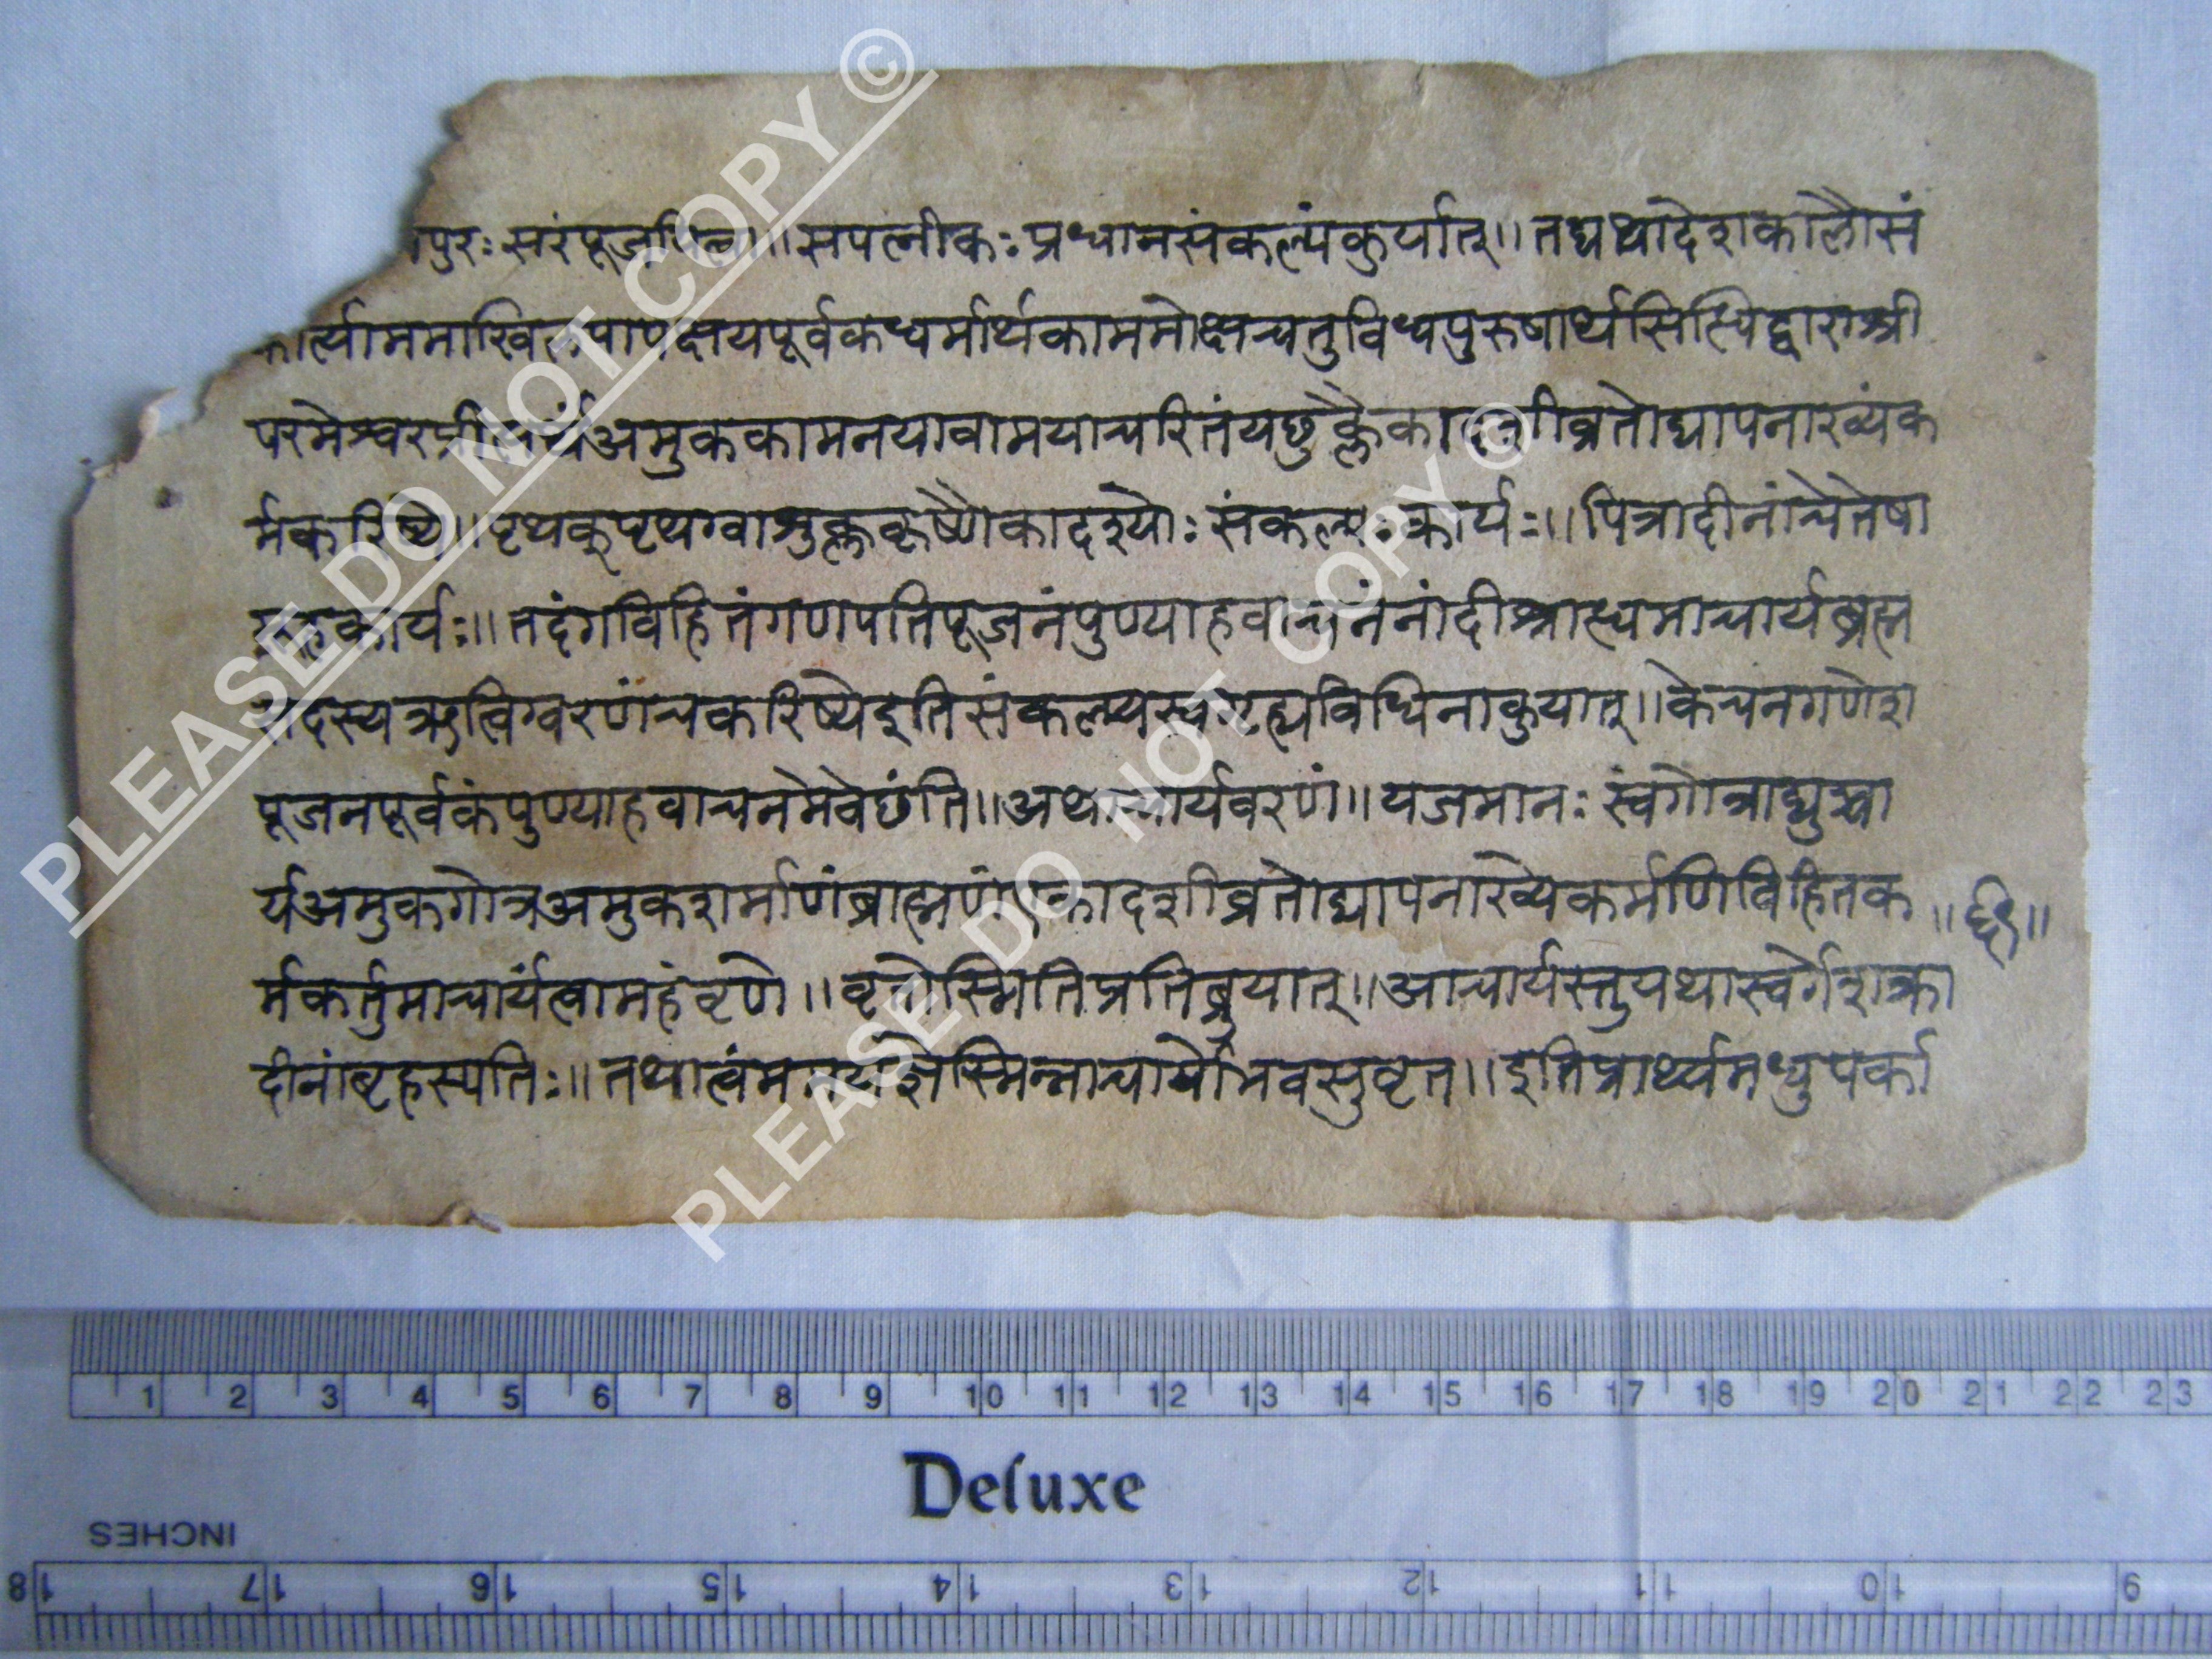 पुरःसरंपूजयित्वा॥सपत्नीकःप्रधानसंकल्पंकुर्यात्॥तद्यथादेशकालौसं
कीर्त्याममाखिलपापक्षयपूर्वकधर्मार्थकाममोक्षचतुविधपुरुषार्थसिध्धिद्वाराश्री
परमेश्वरप्रीत्यर्थंअमुककामनयावामयाचरितंयछुक्लैकादशीव्रतोद्यापनाख्यंक
र्मकरिष्ये॥पृथक्पृथग्वाशुक्लकृष्णैकादश्योःसंकल्पःकार्यः॥पित्रादीनांचेतेषा
कार्यः॥तदंगविहितंगणपतिपूजनंपुण्याहवाचनंनांदीश्राध्धमाचार्यब्रह्म
सदस्यऋत्विग्वरणंचकरिष्येइतिसंकल्प्यस्वगृह्यविधिनाकुयात्॥केचनगणेश
पूजनपूर्वकंपुण्याहवाचनमेवेछंति॥अथाचार्यवरणं॥यजमानःस्वंगोत्राद्युच्चा
र्यअमुकगोत्रअमुकशर्माणंब्राह्मणंएकादशीव्रतोद्यापनाख्येकर्मणिविहितक
र्मकर्तुमाचार्यंत्वामहंवृणे॥वृतोस्मितिप्रतिब्रूयात्॥आचार्यस्तुयथास्वर्गेशक्रा
दीनांबृहस्पतिः॥तथात्वंममयज्ञेस्मिन्नाचार्योभवसुवृत॥इतिप्रार्थ्यमधुपर्का
PLEASE DO NOT COPY ©
PLEASE DO NOT COPY ©
1 2 3 4 5 6 7 8 9 10 11 12 13 14 15 16 17 18 19 20 21 22 23
Deluxe
INCHES
18 17 16 15 14 13 12 11 10 9